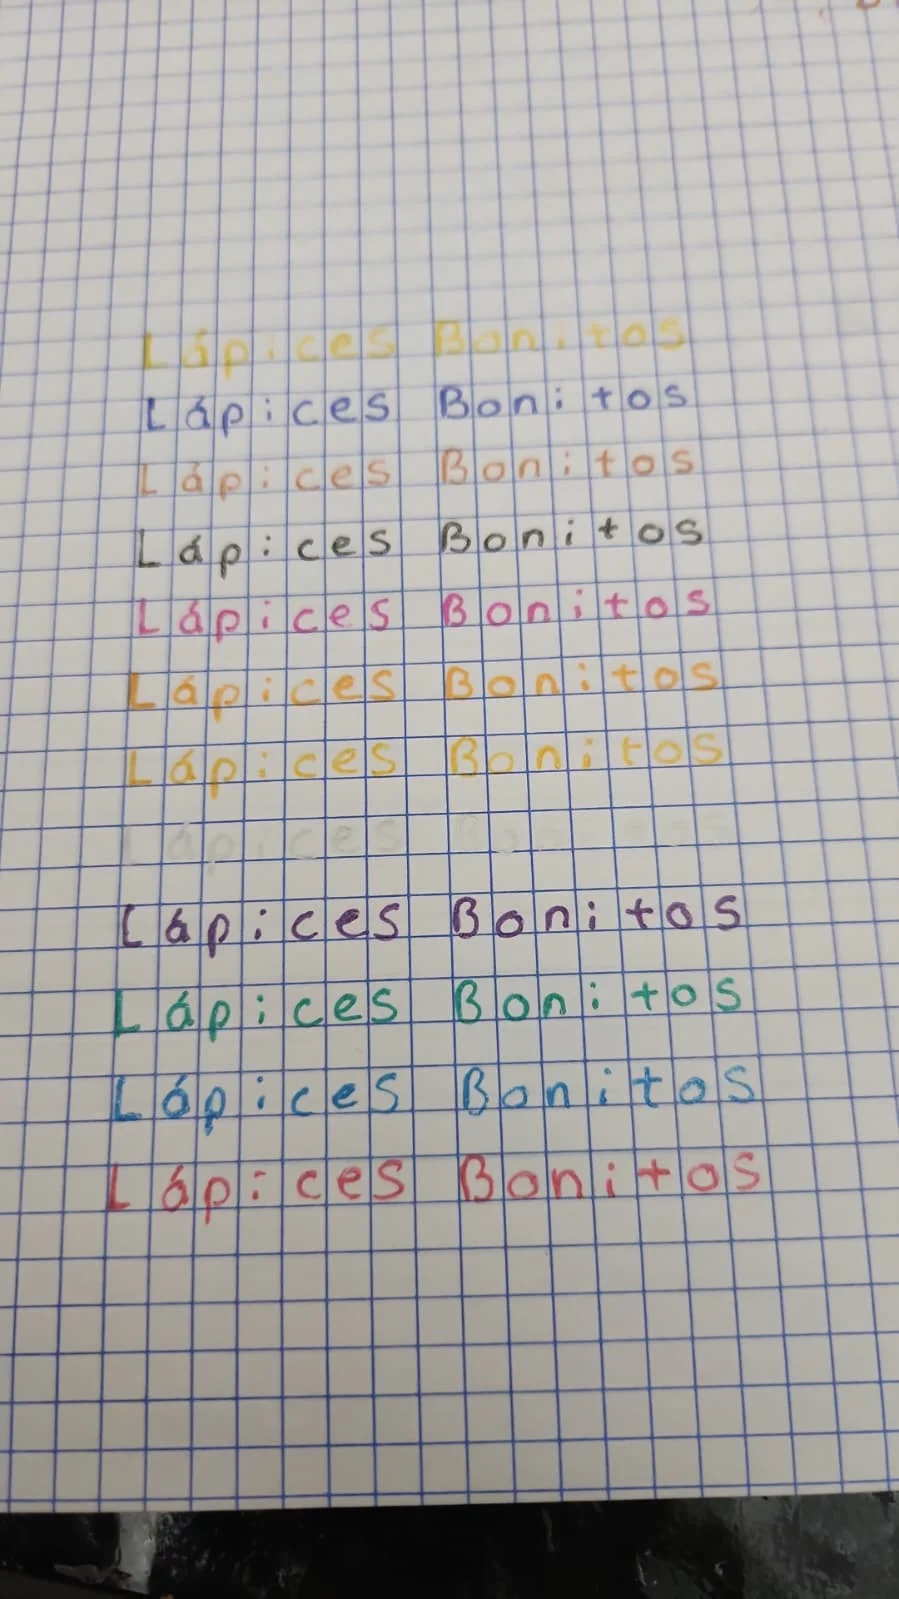 Lápices Bonitos
Lápices Bonitos
Lápices Bonitos
Lápices Bonitos
Lápices Bonitos
Lápices Bonitos
Lápices Bonitos
Lápices Bonitos
Lápices Bonitos
Lápices Bonitos
Lápices Bonitos
Lápices Bonitos